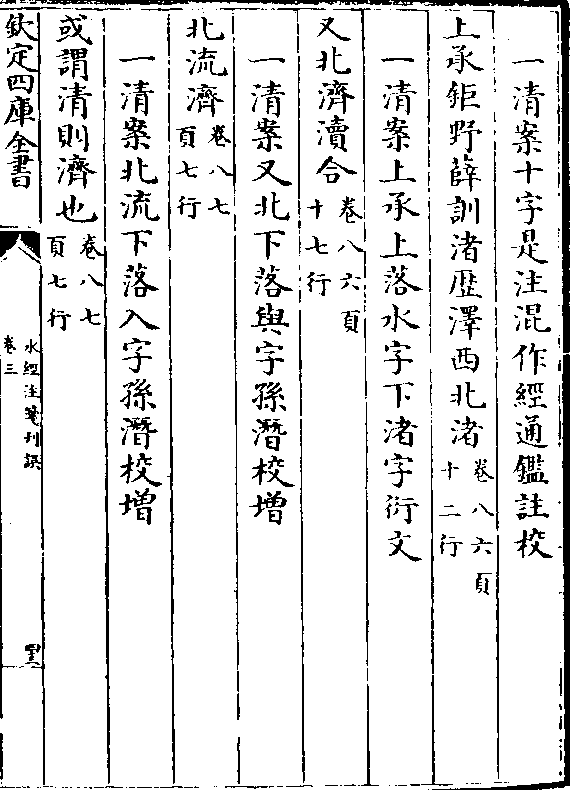 一清案十字是注混作經通鑑註校
上承鉅野薛訓渚歴澤西北渚卷八六頁十二行
一清案上承上落水字下渚字衍文
又北濟瀆合卷八六頁十七行
一清案又北下落與字孫潛校增
北流濟卷八七頁七行
一清案北流下落入字孫潛校增
或謂清則濟也卷八七頁七行
欽定四庫全書
水經注箋刊誤
卷三